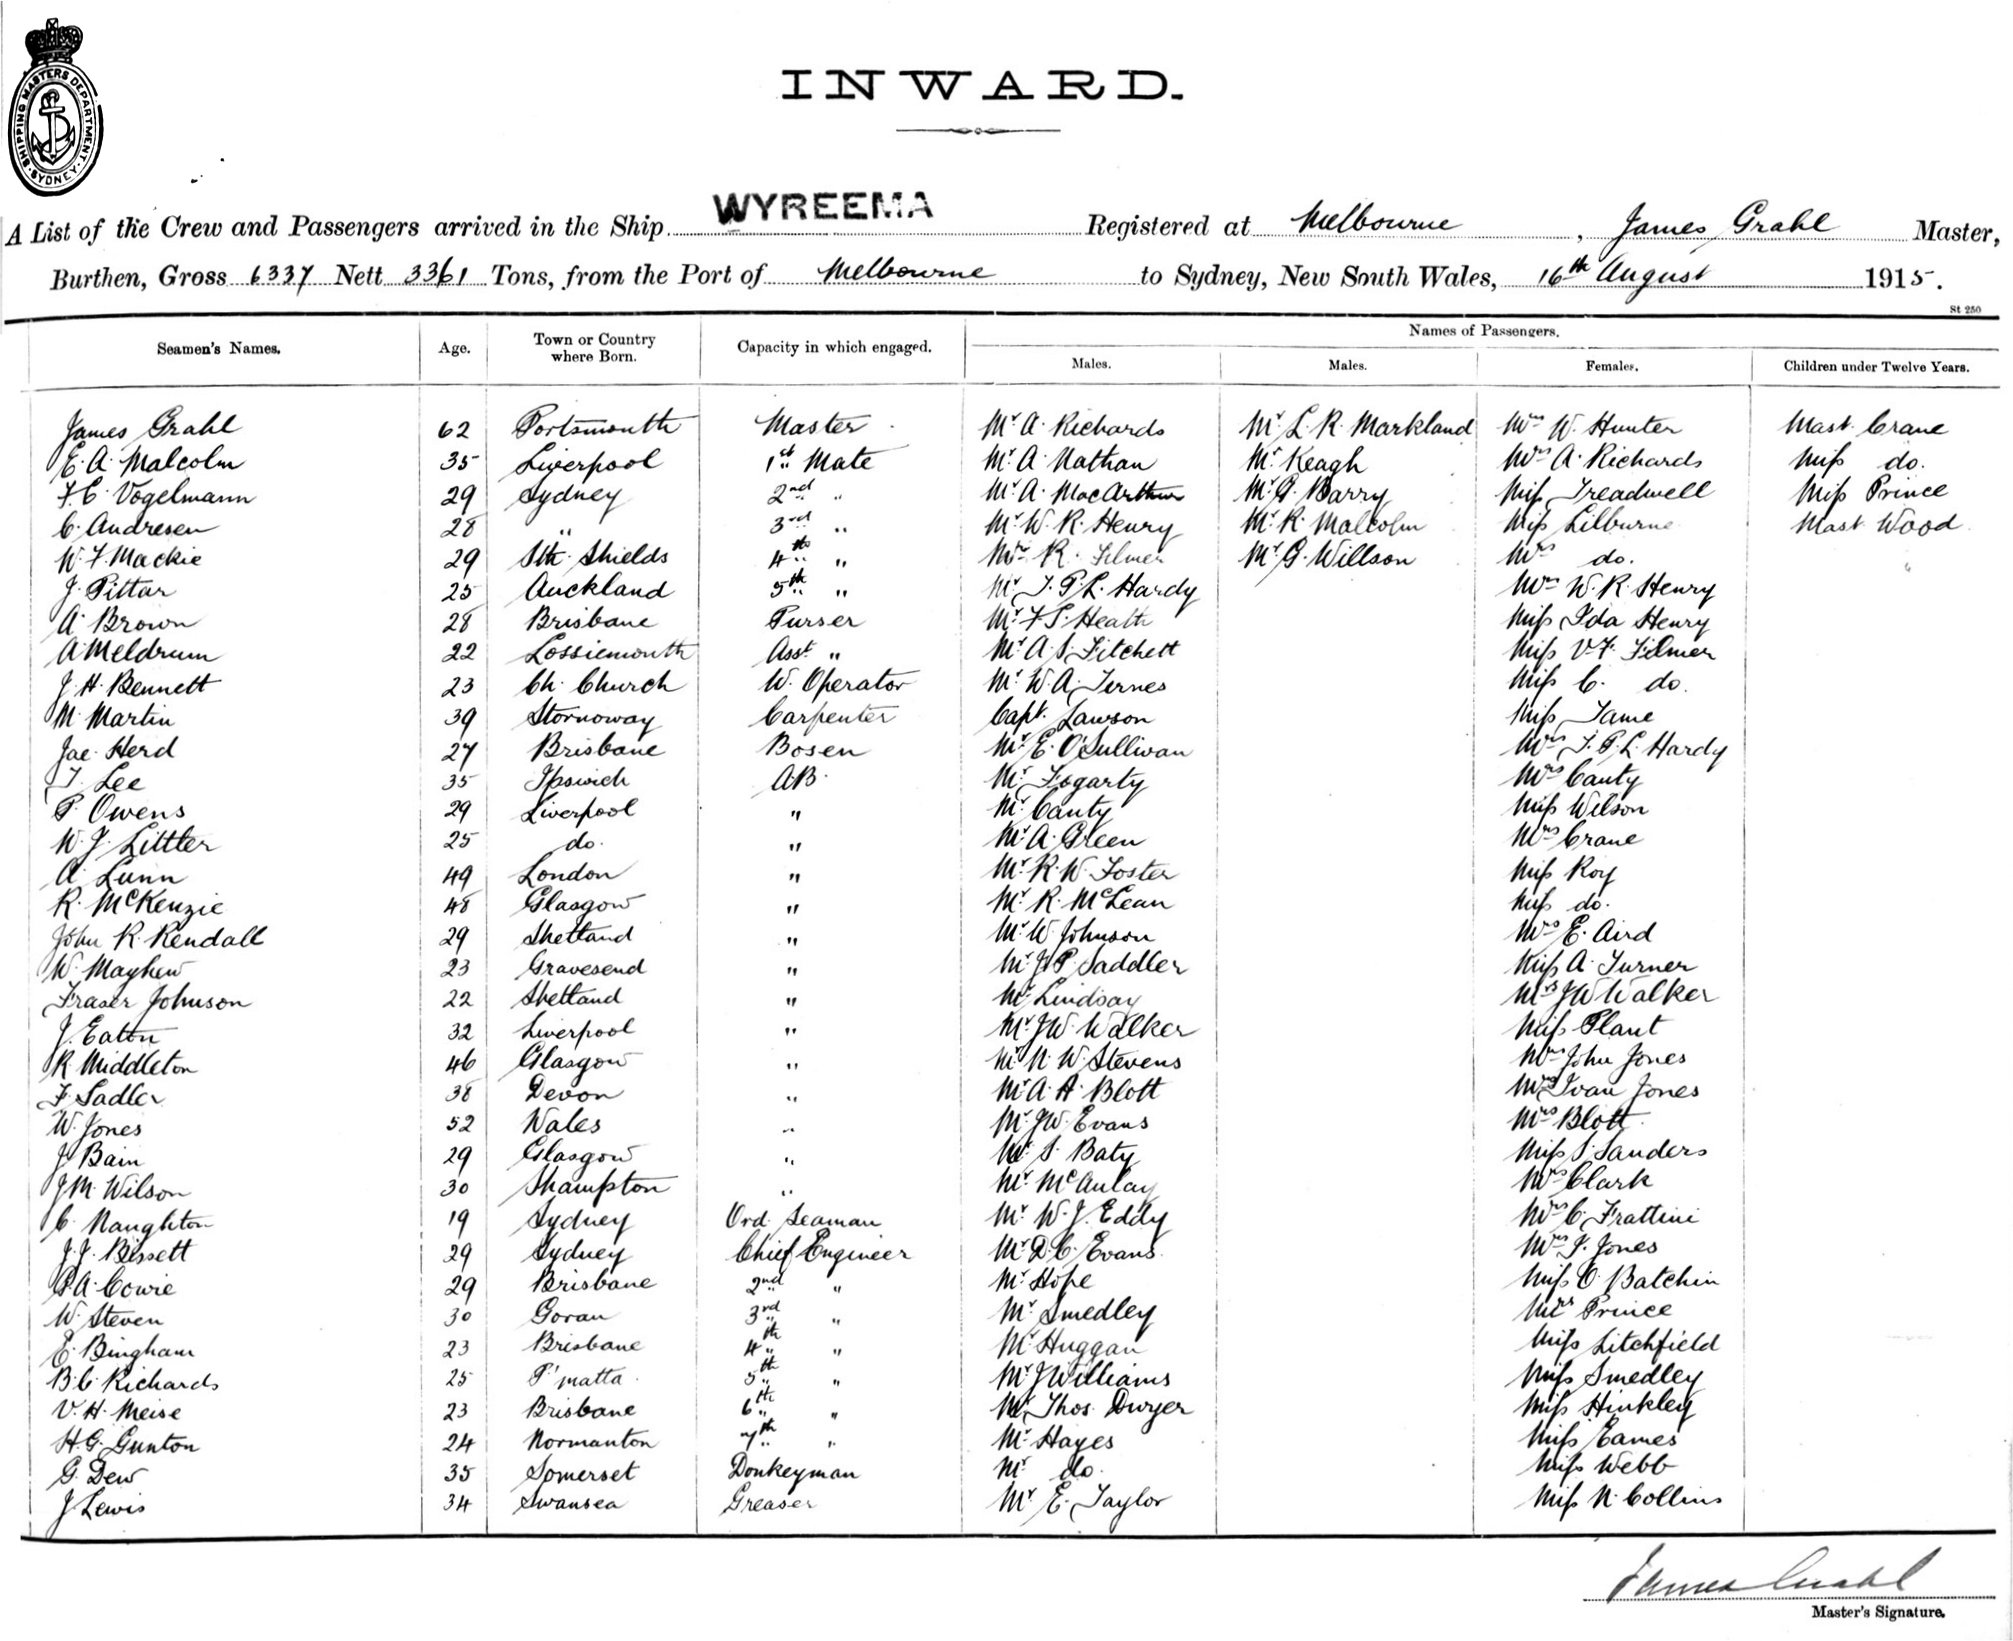 SHIPPING MASTERS DEPARTMENT. SYDNEY.
INWARD.
A List of the Crew and Passengers arrived in the Ship WYREEMA Registered at Melbourne, James Grahl Master,
Burthen, Gross 6337 Nett 3361 Tons, from the Port of Melbourne to Sydney, New South Wales, 16th August 1915.
St 250
Names of Passengers.
Seamen's Names. Age. Town or Country where Born. Capacity in which engaged. Males. Males. Females. Children under Twelve Years.
James Grahl 62 Portsmouth Master Mr A. Richards Mr L. R. Markland Mrs W. Hunter Mast. Crane
E. A. Malcolm 35 Liverpool 1st Mate Mr A. Nathan Mr Keagh Mrs A. Richards Miss do.
F. C. Vogelmann 29 Sydney 2nd " Mr A. MacArthur Mr G. Barry Miss Treadwell Miss Prince
C. Andresen 28 " 3rd " Mr W. R. Henry Mr R. Malcolm Miss Lilburne Mast. Wood
W. F. Mackie 29 Sth. Shields 4th " R. Filmer Mr G. Willson Mrs do.
J. Pittar 25 Auckland 5th " Mr T. P. L. Hardy Mrs W. R. Henry
A. Brown 28 Brisbane Purser Mr F. P. Heath Miss Ida Henry
A Meldrum 22 Lossiemouth Asst. " Mr A. S. Fitchett Miss V. F. Filmer
J. H. Bennett 23 Ch. Church W. Operator Mr W. A. Ternes Miss C. do.
M. Martin 39 Stornoway Carpenter Capt. Lawson Miss Tame
Jae. Herd 27 Brisbane Bosen Mr E. O'Sullivan Mrs T. P. L. Hardy
T. Lee 35 Ipswich AB. Mr Fogarty Mrs Canty
P. Owens 29 Liverpool " Mr Canty Miss Wilson
W. J. Littler 25 do. " Mr A. Green Mrs Crane
A. Lunn 49 London " Mr R. W. Foster Miss Roy
R. McKenzie 48 Glasgow " Mr R. McLean Miss do.
John R. Rendall 29 Shetland " Mr W. Johnson Mrs E. Aird
W. Mayhew 23 Gravesend " Mr J. P. Saddler Miss A. Turner
Fraser Johnson 22 Shetland " Mr Lindsay Mrs J W Walker
J. Eaton 32 Liverpool " Mr J W. Walker Miss Plant
R Middleton 46 Glasgow " Mr N. W. Stevens Mrs John Jones
F. Sadler 38 Devon " Mr A. A. Blott Mrs Ivan Jones
W. Jones 52 Wales " Mr J W. Evans Mrs Blott
J Bain 29 Glasgow " Mr S. Baty Miss S. Sanders
J M. Wilson 30 Shampton " Mr McAulay Mrs Clark
C. Naughton 19 Sydney Ord. Seaman Mr W. J. Eddy Mrs C. Frattini
J. J. Bissett 29 Sydney Chief Engineer Mr D. C. Evans Mrs J. Jones
P. A. Cowie 29 Brisbane 2nd " Mr Hope Miss O. Batchin
W. Steven 30 Govan 3rd " Mr Smedley Mrs Prince
E. Bingham 23 Brisbane 4th " Mr Huggan Miss Litchfield
B. C. Richards 25 P'matta 5th " Mr J Williams Miss Smedley
V. H. Meise 23 Brisbane 6th " Mr Thos. Dwyer Miss Hinkley
H. G. Gunton 24 Normanton 7th " Mr Hayes Miss Eames
G. Dew 35 Somerset Donkeyman Mr do. Miss Webb
J Lewis 34 Swansea Greaser Mr E. Taylor Miss N. Collins
James Grahl
Master's Signature.